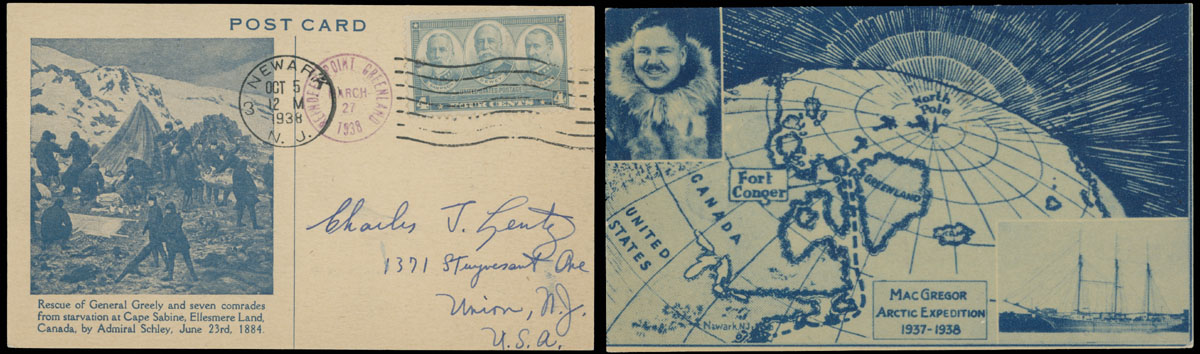 POST CARD
NEWARK
3
OCT 5
12 M
1938
N. J.
REINDEER POINT GREENLAND
MARCH
27
1938
UNITED STATES POSTAGE
4 FOUR CENTS 4
Charles J. Lentz
1371 Stuyvesant Ave
Union, N.J.
U.S.A.
Rescue of General Greely and seven comrades
from starvation at Cape Sabine, Ellesmere Land,
Canada, by Admiral Schley, June 23rd, 1884.
North
Pole
Fort
Conger
GREENLAND
CANADA
UNITED
STATES
Newark, N.J.
MACGREGOR
ARCTIC EXPEDITION
1937-1938